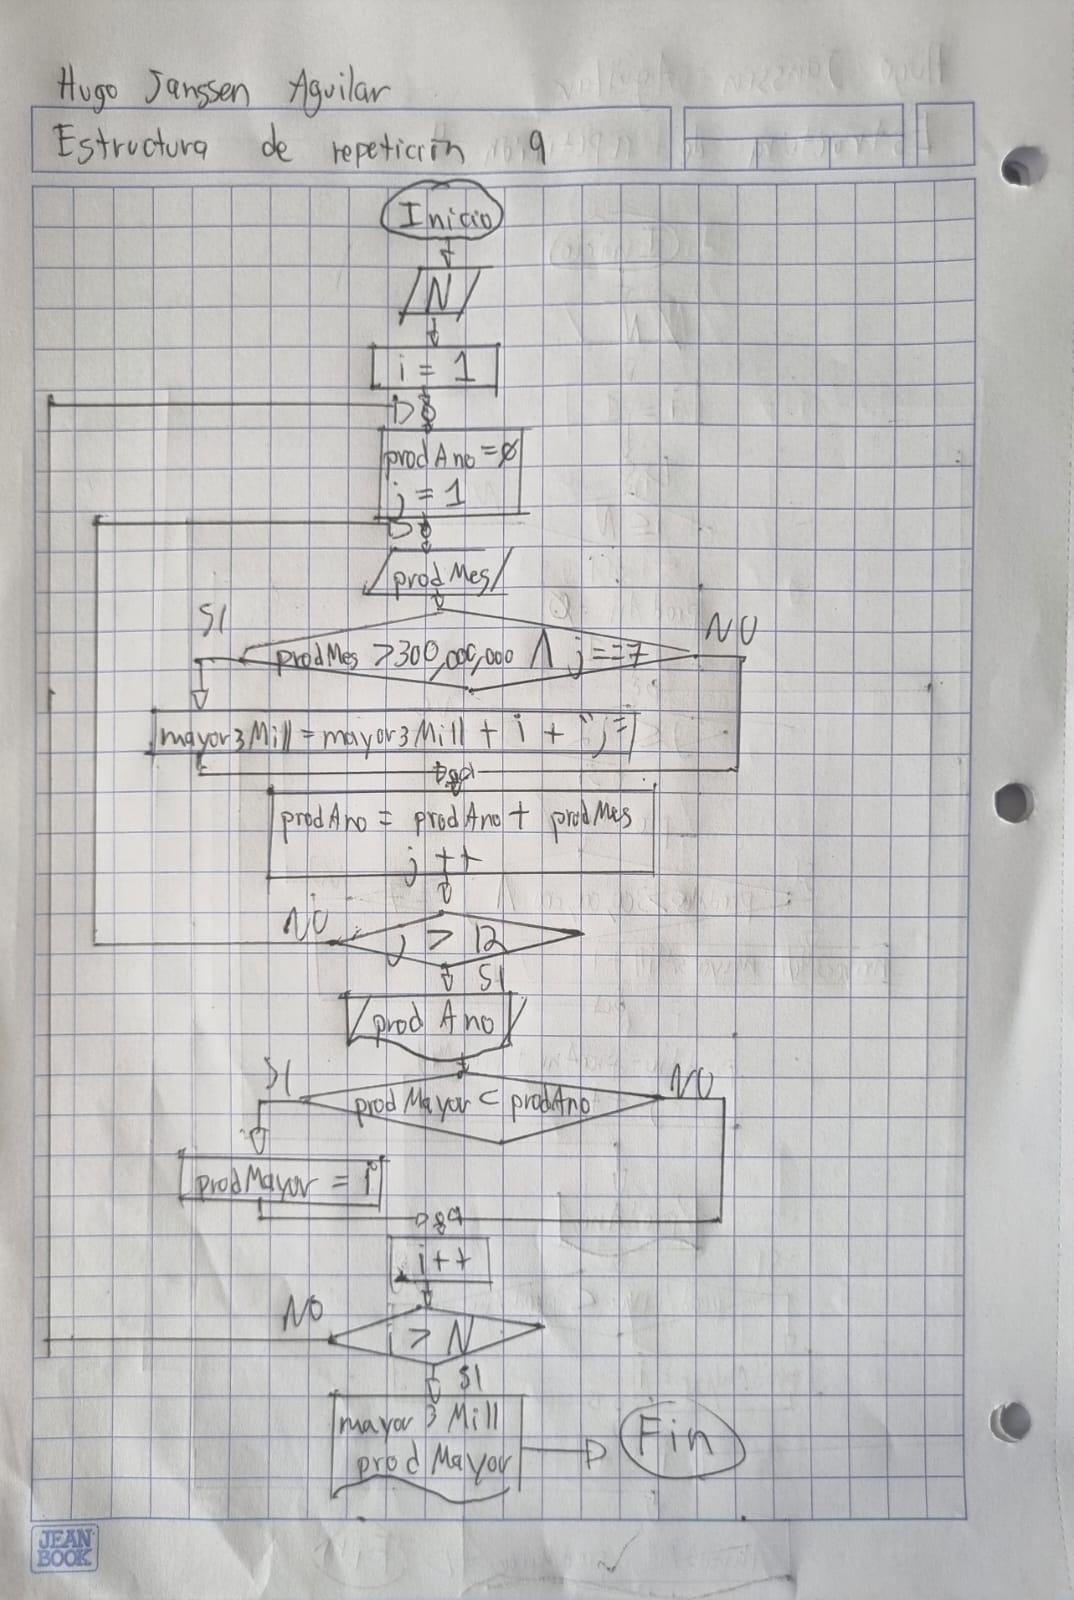 Hugo Janssen Aguilar
Estructura de repetición 9
Inicio
N
i = 1
prodAno = 0
j = 1
prodMes
SI
NO
prodMes > 300,000,000 Λ j == 7
mayor3Mill = mayor3Mill + i + "j="
prodAno = prodAno + prodMes
j ++
NO
j > 12
SI
prod Ano
SI
NO
prodMayor < prodAno
prodMayor = i
i++
NO
i > N
SI
mayor 3 Mill
prod Mayor
Fin
JEAN
BOOK